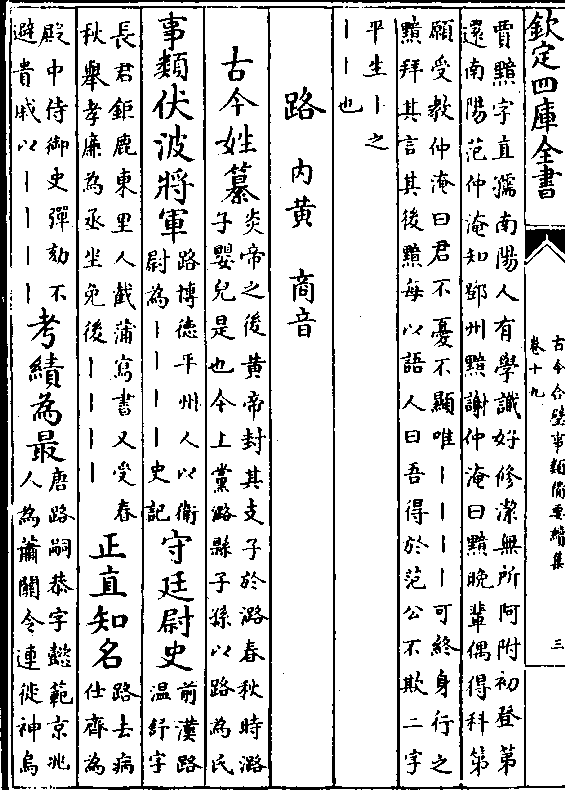 欽定四庫全書
古今合璧事類備要續集
卷十九
三
賈黯字直孺南陽人有學識好修潔無所阿附初登第
還南陽范仲淹知鄧州黯謝仲淹曰黯晚輩偶得科第
願受教仲淹曰君不憂不顯唯丨丨丨丨可終身行之
黯拜其言其後黯每以語人曰吾得於范公不欺二字
平生丨之
丨丨也
路 内黄 商音
古今姓纂
炎帝之後黄帝封其支子於潞春秋時潞
子嬰兒是也今上黨潞縣子孫以路為氏
事類伏波將軍
路博德平州人以衛
尉為丨丨丨丨史記
守廷尉史
前漢路
温舒字
長君鉅鹿東里人截蒲寫書又受春
秋舉孝廉為丞坐免後丨丨丨丨
正直知名
路去病
仕齊為
殿中侍御史彈劾不
避貴戚以丨丨丨丨
考績為最
唐路嗣恭字懿範京兆
人為蕭關令連徙神烏